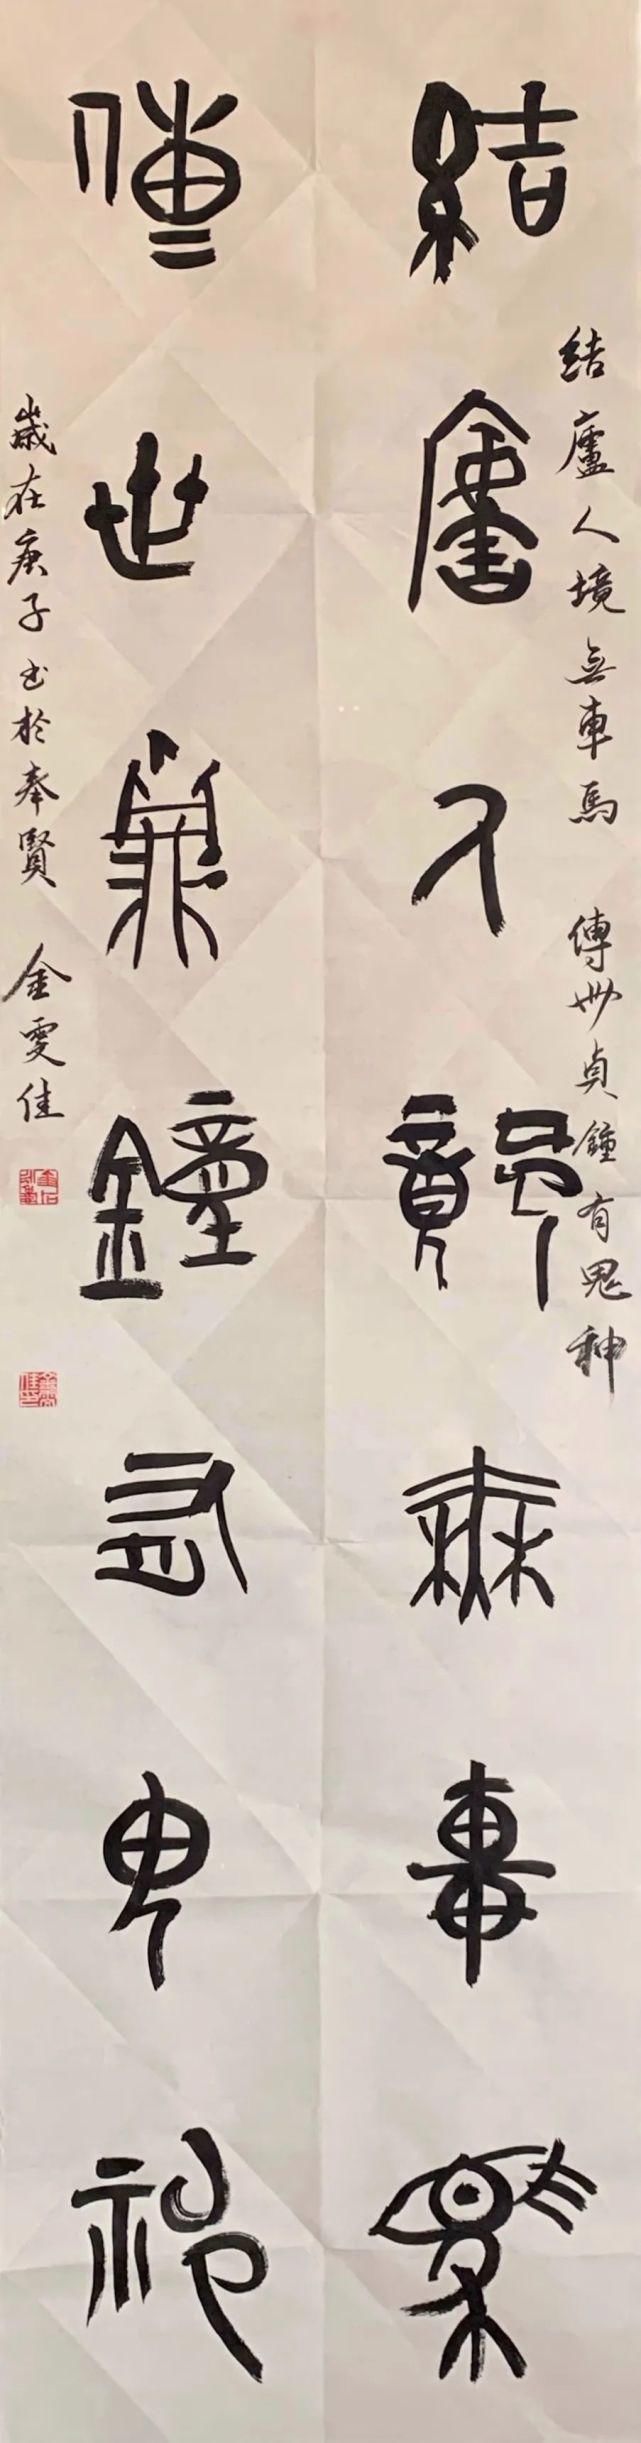 結廬人境無車馬
傳世貞鐘有鬼神
结廬人境無車馬 傳世貞鐘有鬼神
歲在庚子書於奉賢 金雯佳